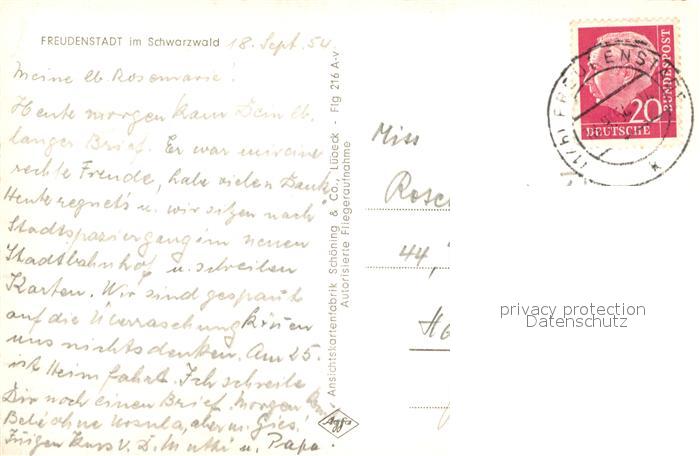 FREUDENSTADT im Schwarzwald 18. Sept. 54
Meine lb. Rosemarie!
Heute morgen kam Dein lb.
langer Brief. Er war mir eine
rechte Freude, habe vielen Dank
Heute regnet's u. wir sitzen nach
Stadtspaziergang im neuen
Stadtbahnhof u. schreiben
Karten. Wir sind gespannt
auf die Überraschung können
uns nichts denken. Am 25.
ist Heimfahrt. Ich schreibe
Dir noch einen Brief. Morgen
ohne Ursula, aber m.
Kuss v. D. Mutti u. Papa.
Ansichtskartenfabrik Schöning & Co., Lübeck - Ffg 216 A-v
Autorisierte Fliegeraufnahme
Agfa
Miss
44,
DEUTSCHE
BUNDESPOST
20
FREUDENSTADT
privacy protection
Datenschutz